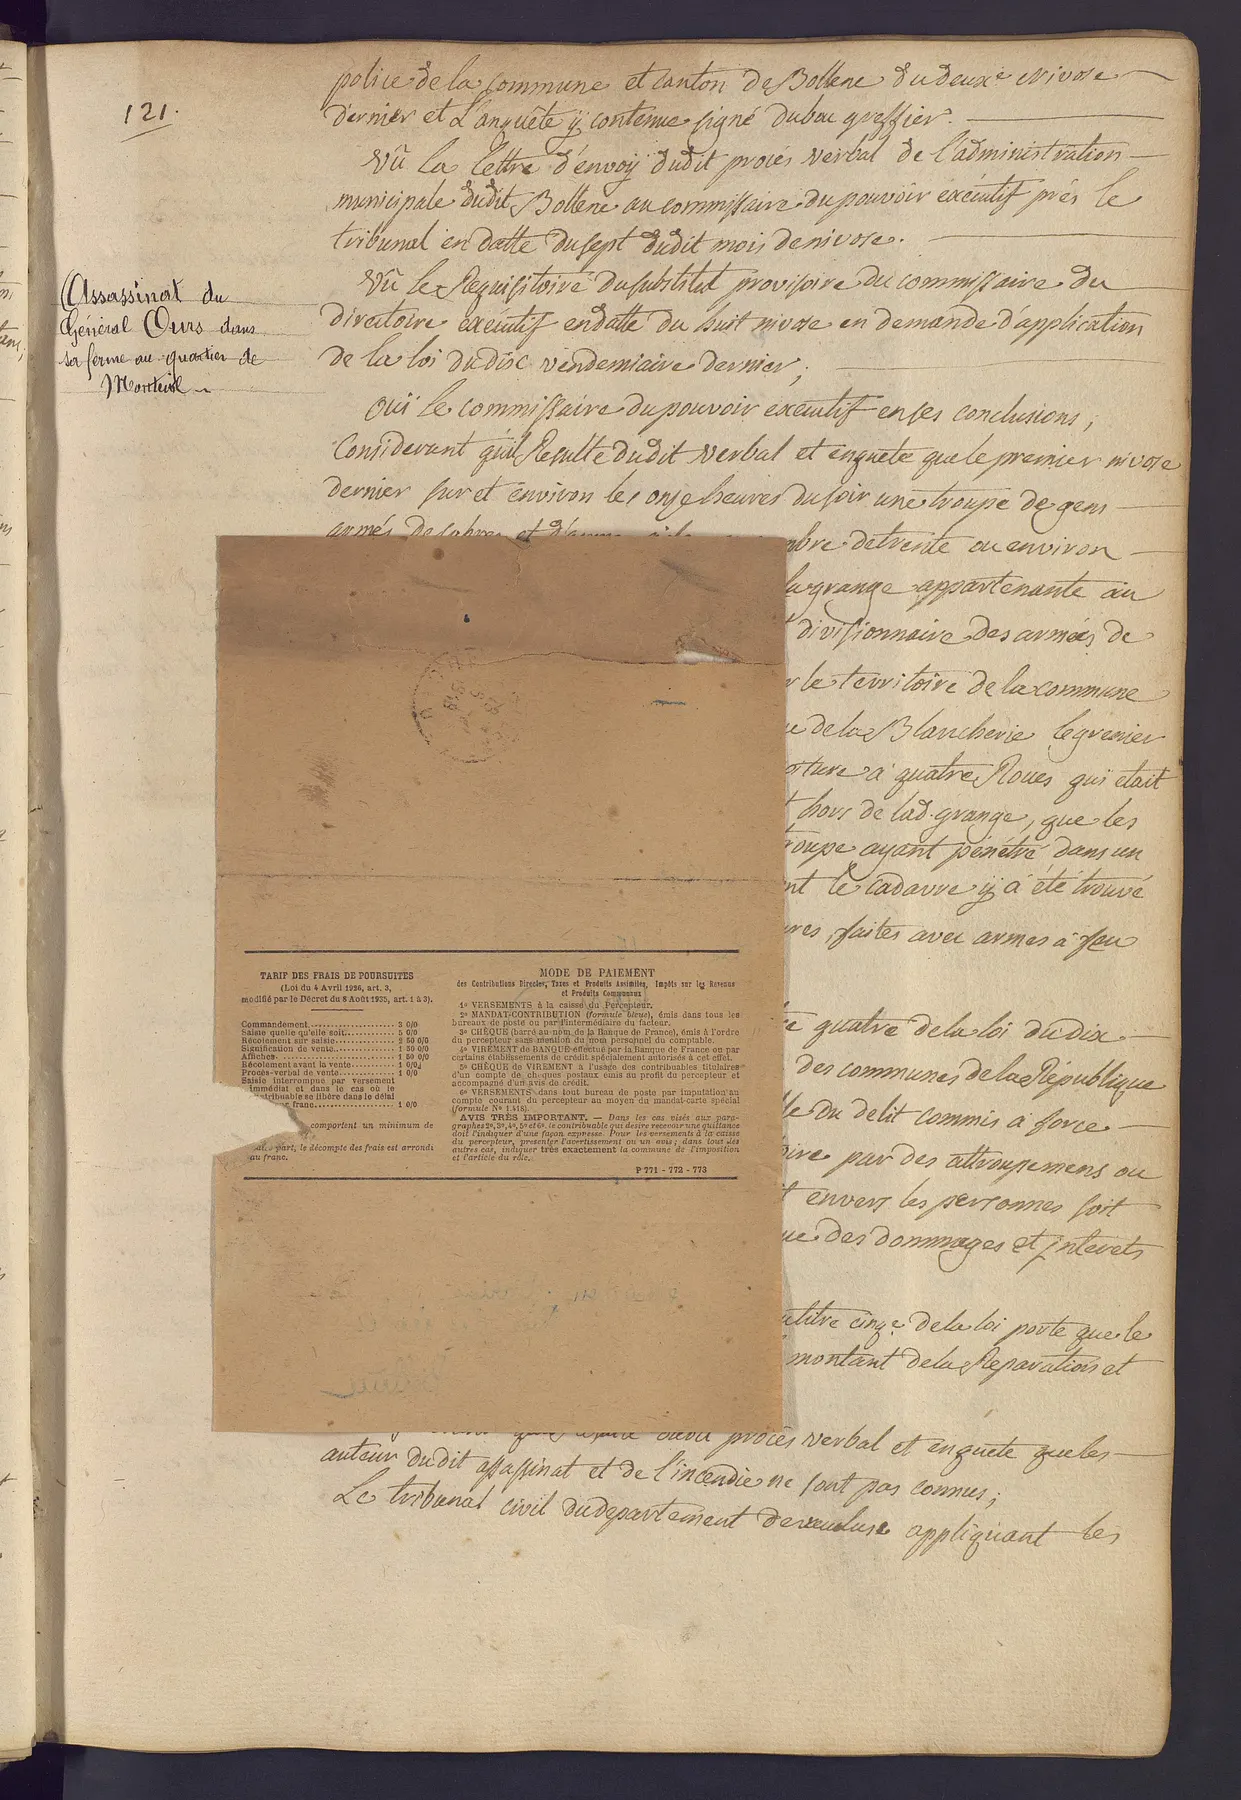 121.
police de la commune et canton de Bollene du deux.e Nivose
dernier et L'anquête y contenue signé dubau greffier.
Vû la lettre d'envoy dudit procés verbal de l'administration
municipale dudit Bollene au commissaire du pouvoir exécutif prés le
tribunal en datte du sept dudit mois de nivose.
Vû le Requisitoire du substitut provisoire du commissaire du
directoire exécutif en datte du huit nivose en demande d'application
de la loi du dix vendemiaire dernier;
Ouï le commissaire du pouvoir exécutif en ses conclusions;
Considerant qu'il Resulte dudit verbal et enquete que le premier nivose
dernier sur et environ les onze heures du soir une troupe de gens
armés de sabres et d'armes à
Assassinat du
Général Ours dans
sa ferme au quartier de
Monteil
mbre de trente ou environ
la grange appartenante au
divisionnaire des armées de
r le territoire de la commune
ue de la Blancherie le grenier
oiture à quatre Roues qui était
t hors de lad. grange, que les
roupe ayant pénétré dans un
nt le cadavre y à été trouvé
ures, faites avec armes à feu
quatre de la loi du dix
des communes de la République
lle du delit commis à force
oire par des attroupemens ou
t envers les personnes soit
ue des dommages et interets
titre cinq.e de la loi porte que le
montant de la Reparation et
procés verbal et enquete que les
auteur dudit assassinat et de l'incendie ne sont pas connus;
Le tribunal civil du departement de vaucluse appliquant les
TARIF DES FRAIS DE POURSUITES
(Loi du 4 Avril 1926, art. 3,
modifié par le Décret du 8 Août 1935, art. 1 à 3).
Commandement 3 0/0
Saisie quelle qu'elle soit 5 0/0
Récolement sur saisie 2 50 0/0
Signification de vente 1 50 0/0
Affiches 1 50 0/0
Récolement avant la vente 1 0/0
Procès-verbal de vente 1 0/0
Saisie interrompue par versement
immédiat et dans le cas où le
contribuable se libère dans le délai
franc 1 0/0
comportent un minimum de
part, le décompte des frais est arrondi
au franc.
MODE DE PAIEMENT
des Contributions Directes, Taxes et Produits Assimilés, Impôts sur les Revenus
et Produits Communaux
1º VERSEMENTS à la caisse du Percepteur.
2º MANDAT-CONTRIBUTION (formule bleue), émis dans tous les
bureaux de poste ou par l'intermédiaire du facteur.
3º CHÈQUE (barré au nom de la Banque de France), émis à l'ordre
du percepteur sans mention du nom personnel du comptable.
4º VIREMENT de BANQUE effectué par la Banque de France ou par
certains établissements de crédit spécialement autorisés à cet effet.
5º CHÈQUE de VIREMENT à l'usage des contribuables titulaires
d'un compte de chèques postaux émis au profit du percepteur et
accompagné d'un avis de crédit.
6º VERSEMENTS dans tout bureau de poste par imputation au
compte courant du percepteur au moyen du mandat-carte spécial
(formule Nº 1.418).
AVIS TRÈS IMPORTANT. — Dans les cas visés aux para-
graphes 2º, 3º, 4º, 5º et 6º, le contribuable qui désire recevoir une quittance
doit l'indiquer d'une façon expresse. Pour les versements à la caisse
du percepteur, présenter l'avertissement ou un avis; dans tous les
autres cas, indiquer très exactement la commune de l'imposition
et l'article du rôle.
P 771 - 772 - 773